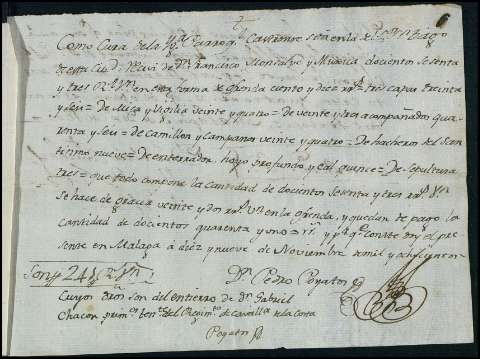 Como Cura de la Ygª Parroql Castrense sita en la de Sr Sn Tiago
de esta Ciud. Reciví de Dn Francisco Monsalve y Muxica docientos sesenta
y tres Rs Vn en esta forma de ofrenda ciento y diez rrs tres capas treinta
y seis = de Misa y Vigilia veinte y quatro = de veinte y tres acompañados qua
renta y seis = de Camillon y Campanas veinte y quatro = De hacheros del San
tisimo nueve = De enterrador, hoyo profundo y Cal quince = De sepultura
tres = que todo compone la Cantidad de docientos sesenta y tres rrs Vn
se hace de gracia veinte y dos rrs Vn en la ofrenda, y quedan de pago la
Cantidad de docientos quarenta y uno rs Vn y pª qe Conste doy el pre
sente en Malaga a diez y nueve de Noviembre de mil y ochocientos
Son 241 Rs Vn
Dn Pedro Poyaton
Cuyos drôs son del entierro de Dn Gabriel
Chacon del Regimto de Cavallª de la Costa
Poyaton